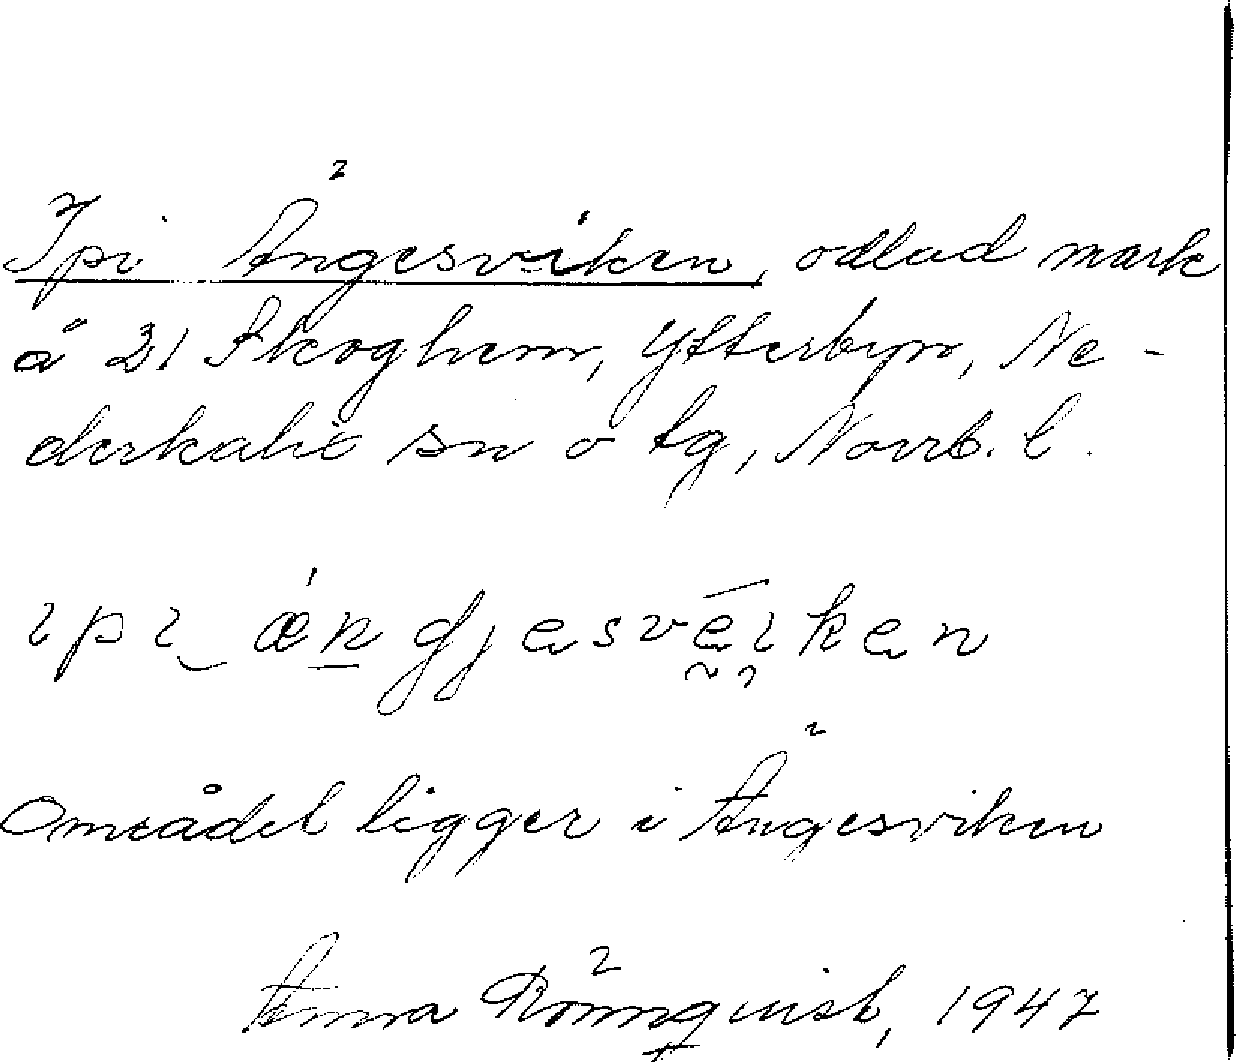 Ipi Ängesviken, odlad mark
å 21 Skoghem, Ytterbyn, Ne-
derkalix sn o tg, Norrb. l.
ipi ængjesveiken
Området ligger i Ängesviken
Anna Rönnquist, 1947